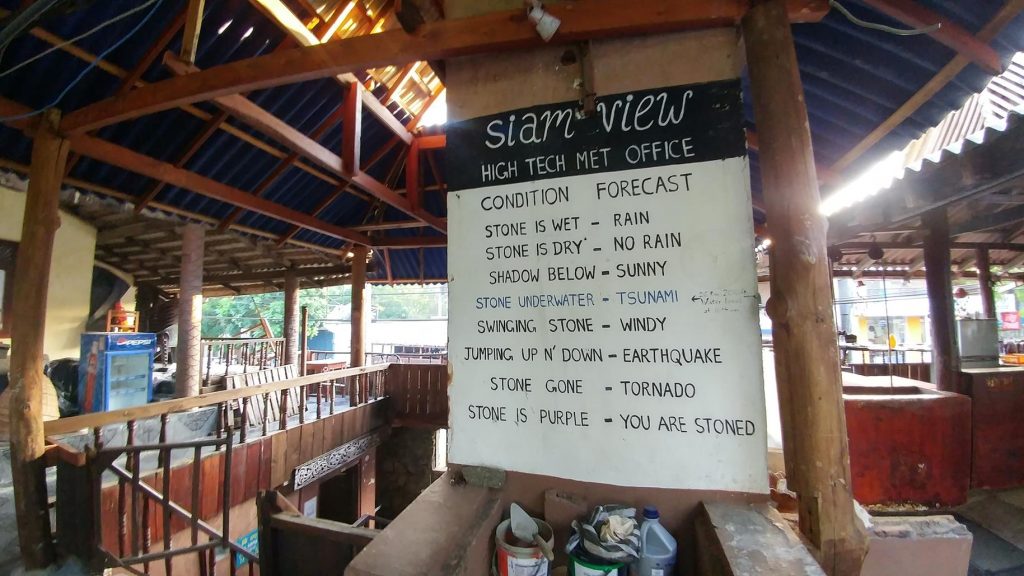 Siam View
HIGH TECH MET OFFICE
CONDITION FORECAST
STONE IS WET - RAIN
STONE IS DRY - NO RAIN
SHADOW BELOW - SUNNY
STONE UNDERWATER - TSUNAMI
SWINGING STONE - WINDY
JUMPING UP N' DOWN - EARTHQUAKE
STONE GONE - TORNADO
STONE IS PURPLE - YOU ARE STONED
PEPSI